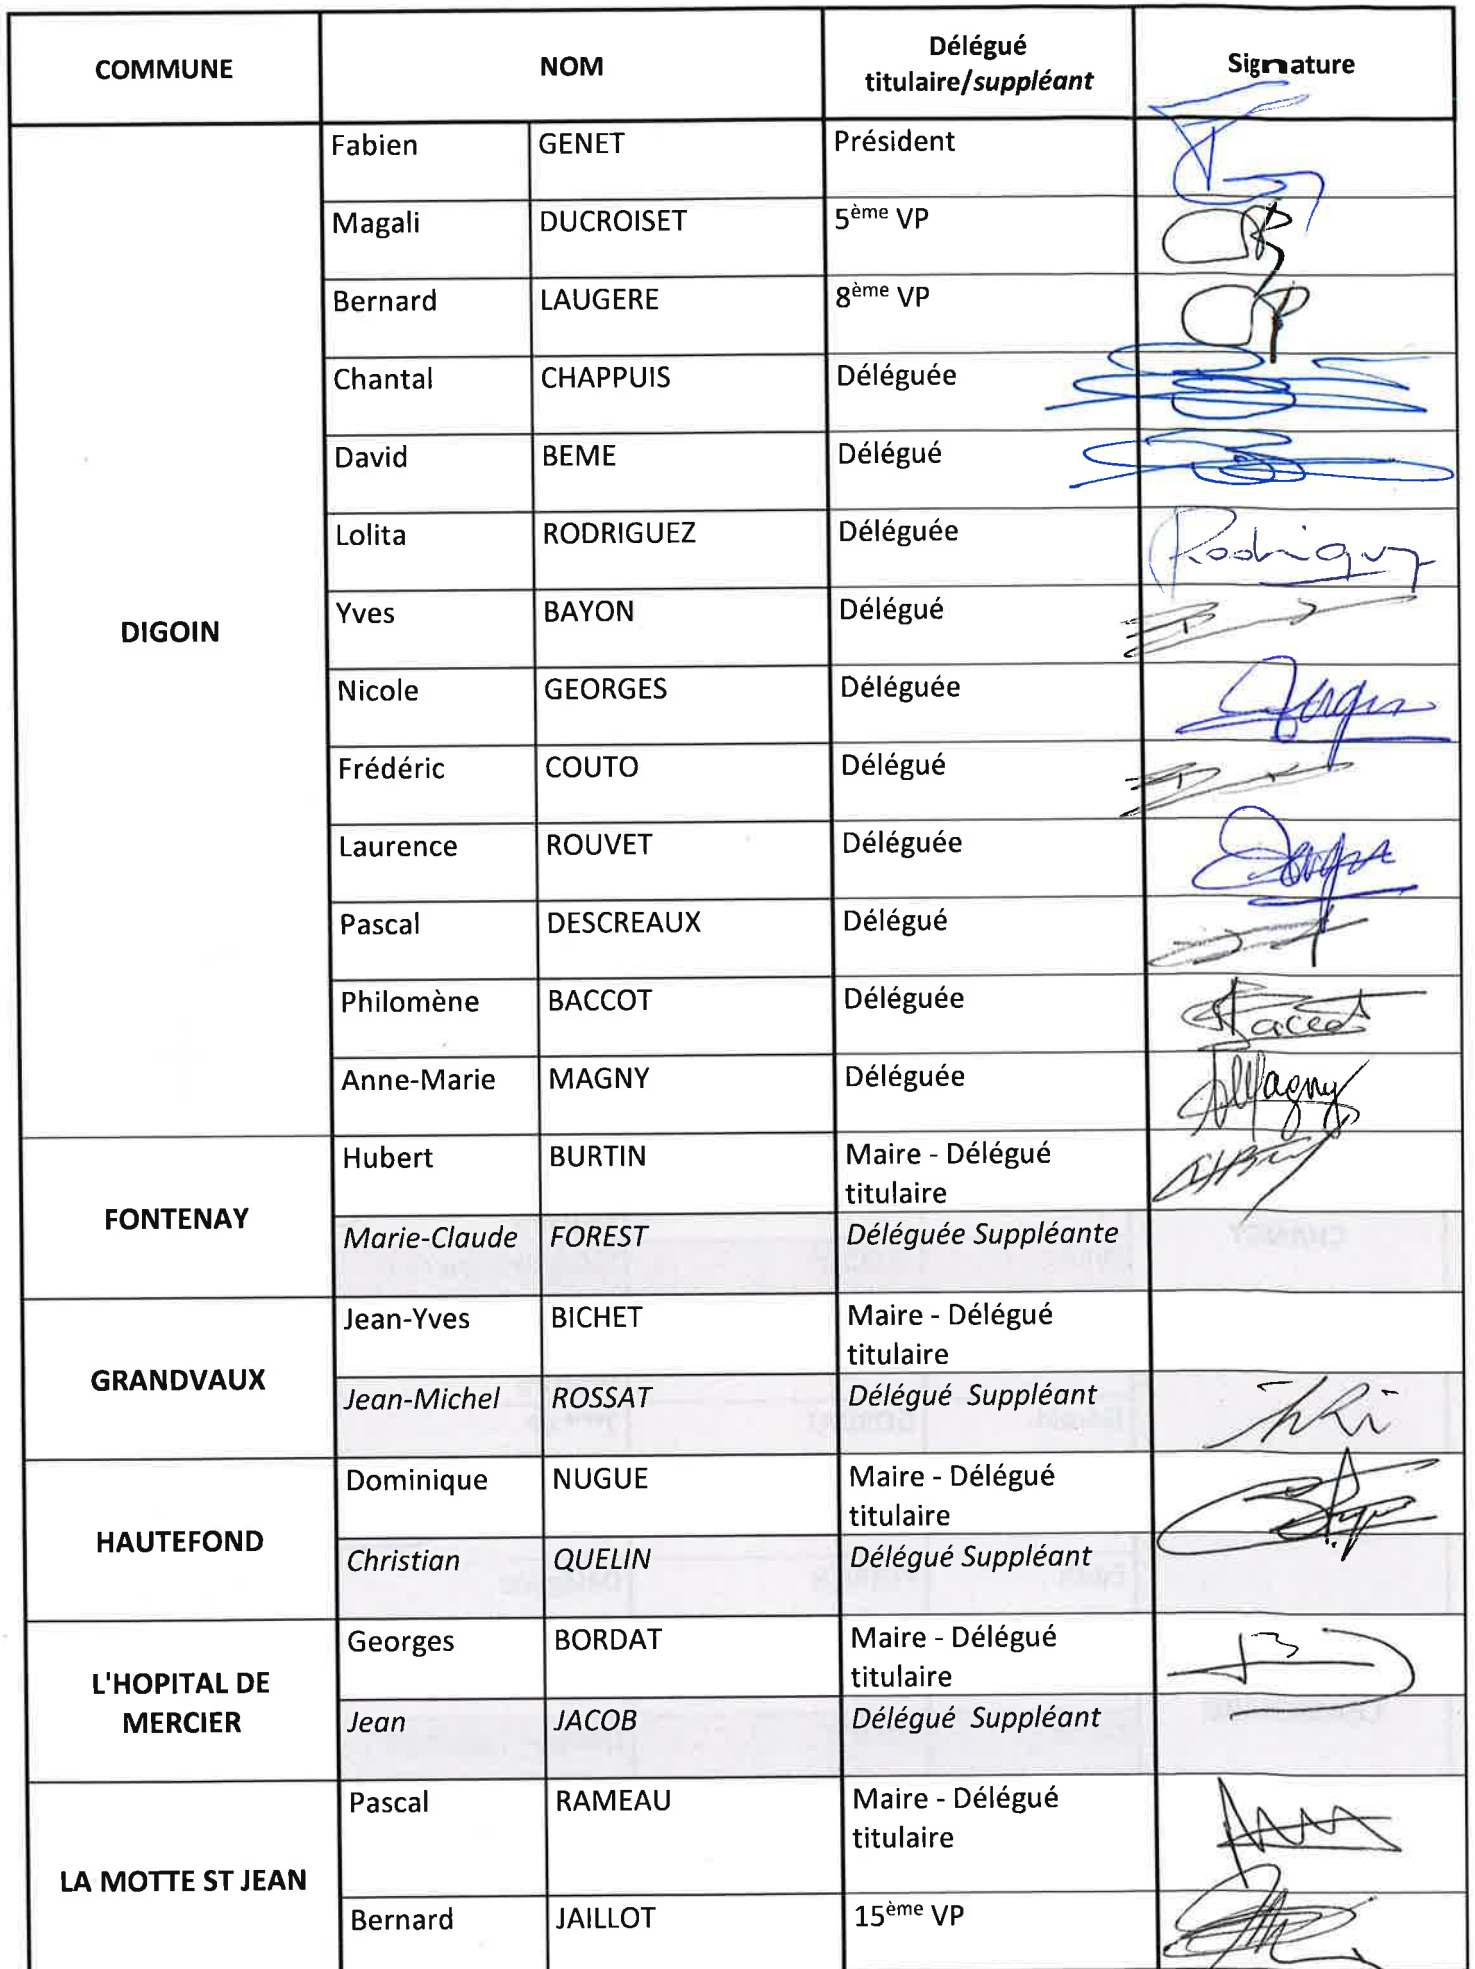 COMMUNE NOM Délégué titulaire/suppléant Signature
DIGOIN
Fabien GENET Président
Magali DUCROISET 5ème VP
Bernard LAUGERE 8ème VP
Chantal CHAPPUIS Déléguée
David BEME Délégué
Lolita RODRIGUEZ Déléguée Rodriguez
Yves BAYON Délégué
Nicole GEORGES Déléguée
Frédéric COUTO Délégué
Laurence ROUVET Déléguée
Pascal DESCREAUX Délégué
Philomène BACCOT Déléguée Baccot
Anne-Marie MAGNY Déléguée AMagny
FONTENAY
Hubert BURTIN Maire - Délégué
titulaire
Marie-Claude FOREST Déléguée Suppléante
GRANDVAUX
Jean-Yves BICHET Maire - Délégué
titulaire
Jean-Michel ROSSAT Délégué Suppléant
HAUTEFOND
Dominique NUGUE Maire - Délégué
titulaire
Christian QUELIN Délégué Suppléant
L'HOPITAL DE
MERCIER
Georges BORDAT Maire - Délégué
titulaire
Jean JACOB Délégué Suppléant
LA MOTTE ST JEAN
Pascal RAMEAU Maire - Délégué
titulaire
Bernard JAILLOT 15ème VP